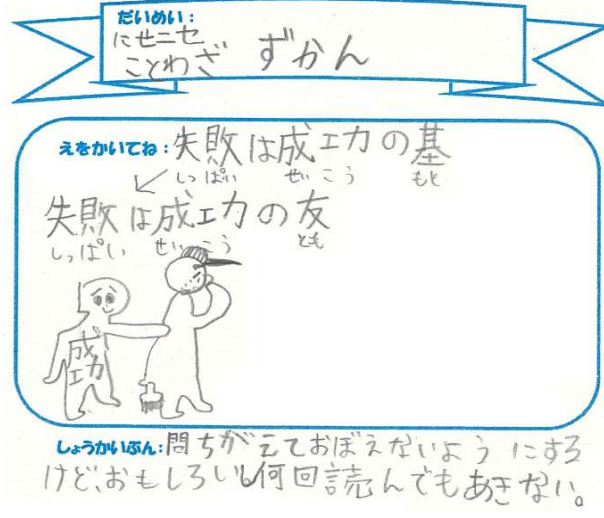 だいめい:
にせニセ
ことわざ ずかん
えをかいてね:失敗は成功の基
しっぱい せいこう もと
失敗は成功の友
しっぱい せいこう とも
成功
しょうかいぶん:間ちがえておぼえないようにする
けど、おもしろいし何回読んでもあきない。